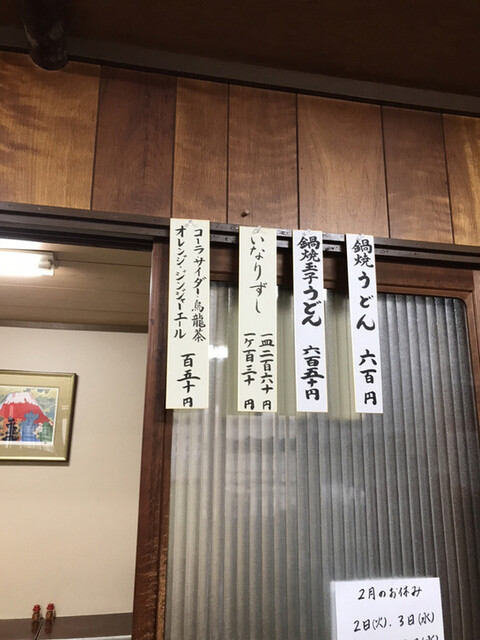 鍋焼うどん 六百円
鍋焼玉子うどん 六百五十円
いなりずし
一皿 二百六十円
一ケ 百三十円
コーラ サイダー 烏龍茶
オレンジ・ジンジャーエール
百五十円
2月のお休み
2日(火). 3日(水)